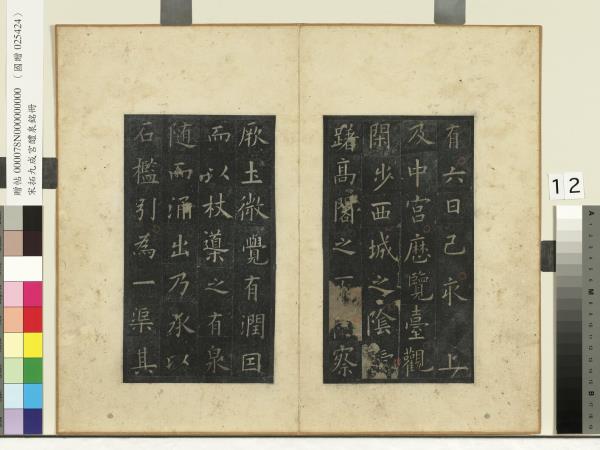 有六日己亥 上
及中宮厯覽臺觀
閑步西城之陰
躇高閣之 察
厥土微覺有潤囙
而以杖導之有泉
隨而涌出乃承以
石檻引為一渠其
贈帖 000078N000000000 （國贈 025424）
宋拓九成宮醴泉銘冊
12